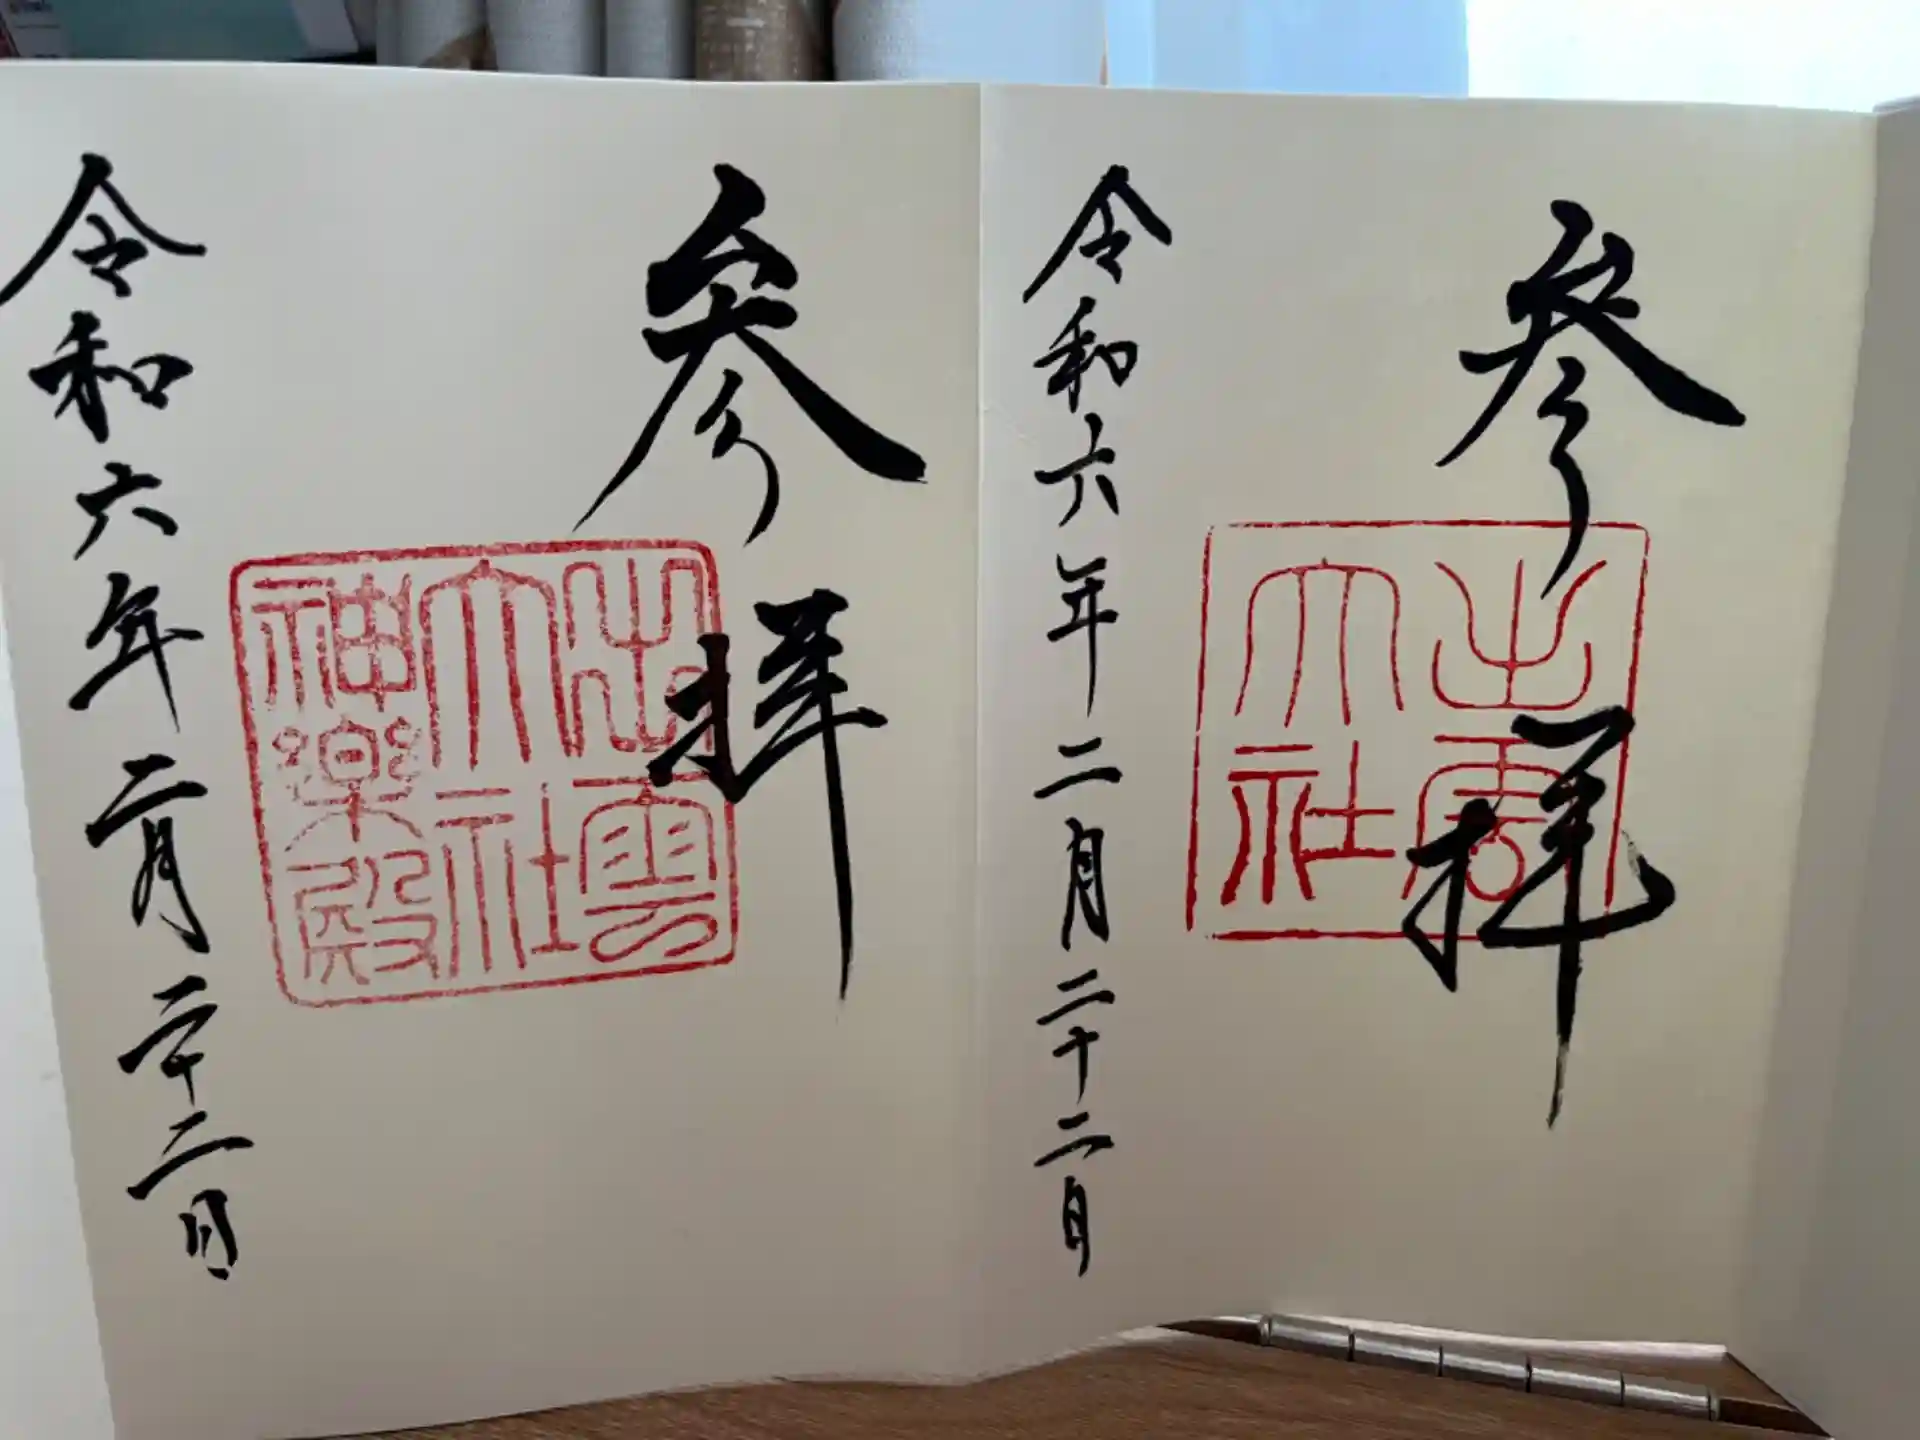 参拝
出雲
大社
令和六年二月二十二日
参拝
出雲
大社
神楽殿
令和六年二月二十二日